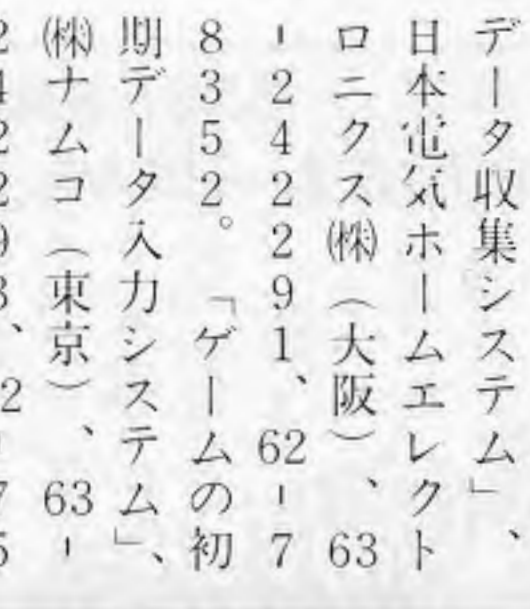 データ収集システム」、
日本電気ホームエレクト
ロニクス㈱（大阪）、63
-242291、62-7
8352。「ゲームの初
期データ入力システム」、
㈱ナムコ（東京）、63-